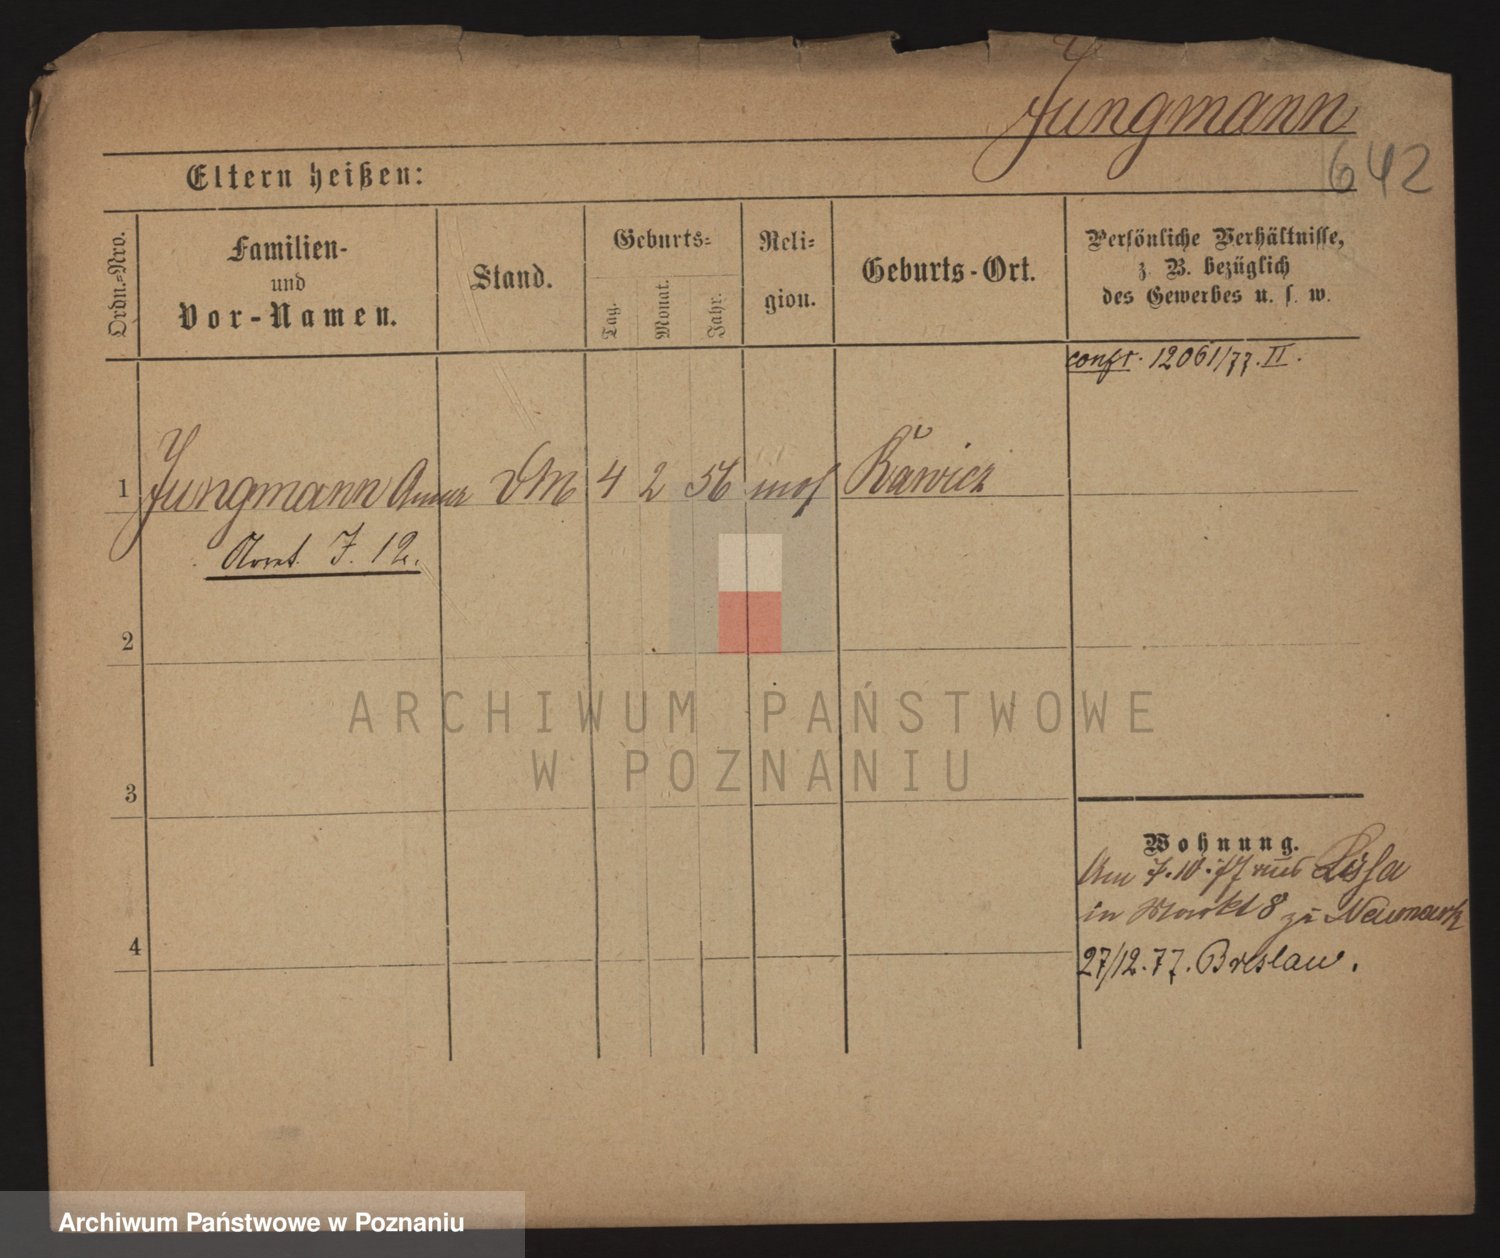 Jungmann
642
Eltern heißen:
Ordn.-Nro.
Familien-
und
Vor-Namen.
Stand.
Geburts-
Tag.
Monat.
Jahr.
Reli-
gion.
Geburts-Ort.
Persönliche Verhältnisse,
z. B. bezüglich
des Gewerbes u. s. w.
12061/77. II.
1 Jungmann Anna DM 4 2 56 mos Rawicz
J. 12.
2
3
4
Wohnung.
Am 7.10.77 aus Lissa
in Markt 8 zu Neumark
27/12.77. Breslau.
ARCHIWUM PAŃSTWOWE
W POZNANIU
Archiwum Państwowe w Poznaniu